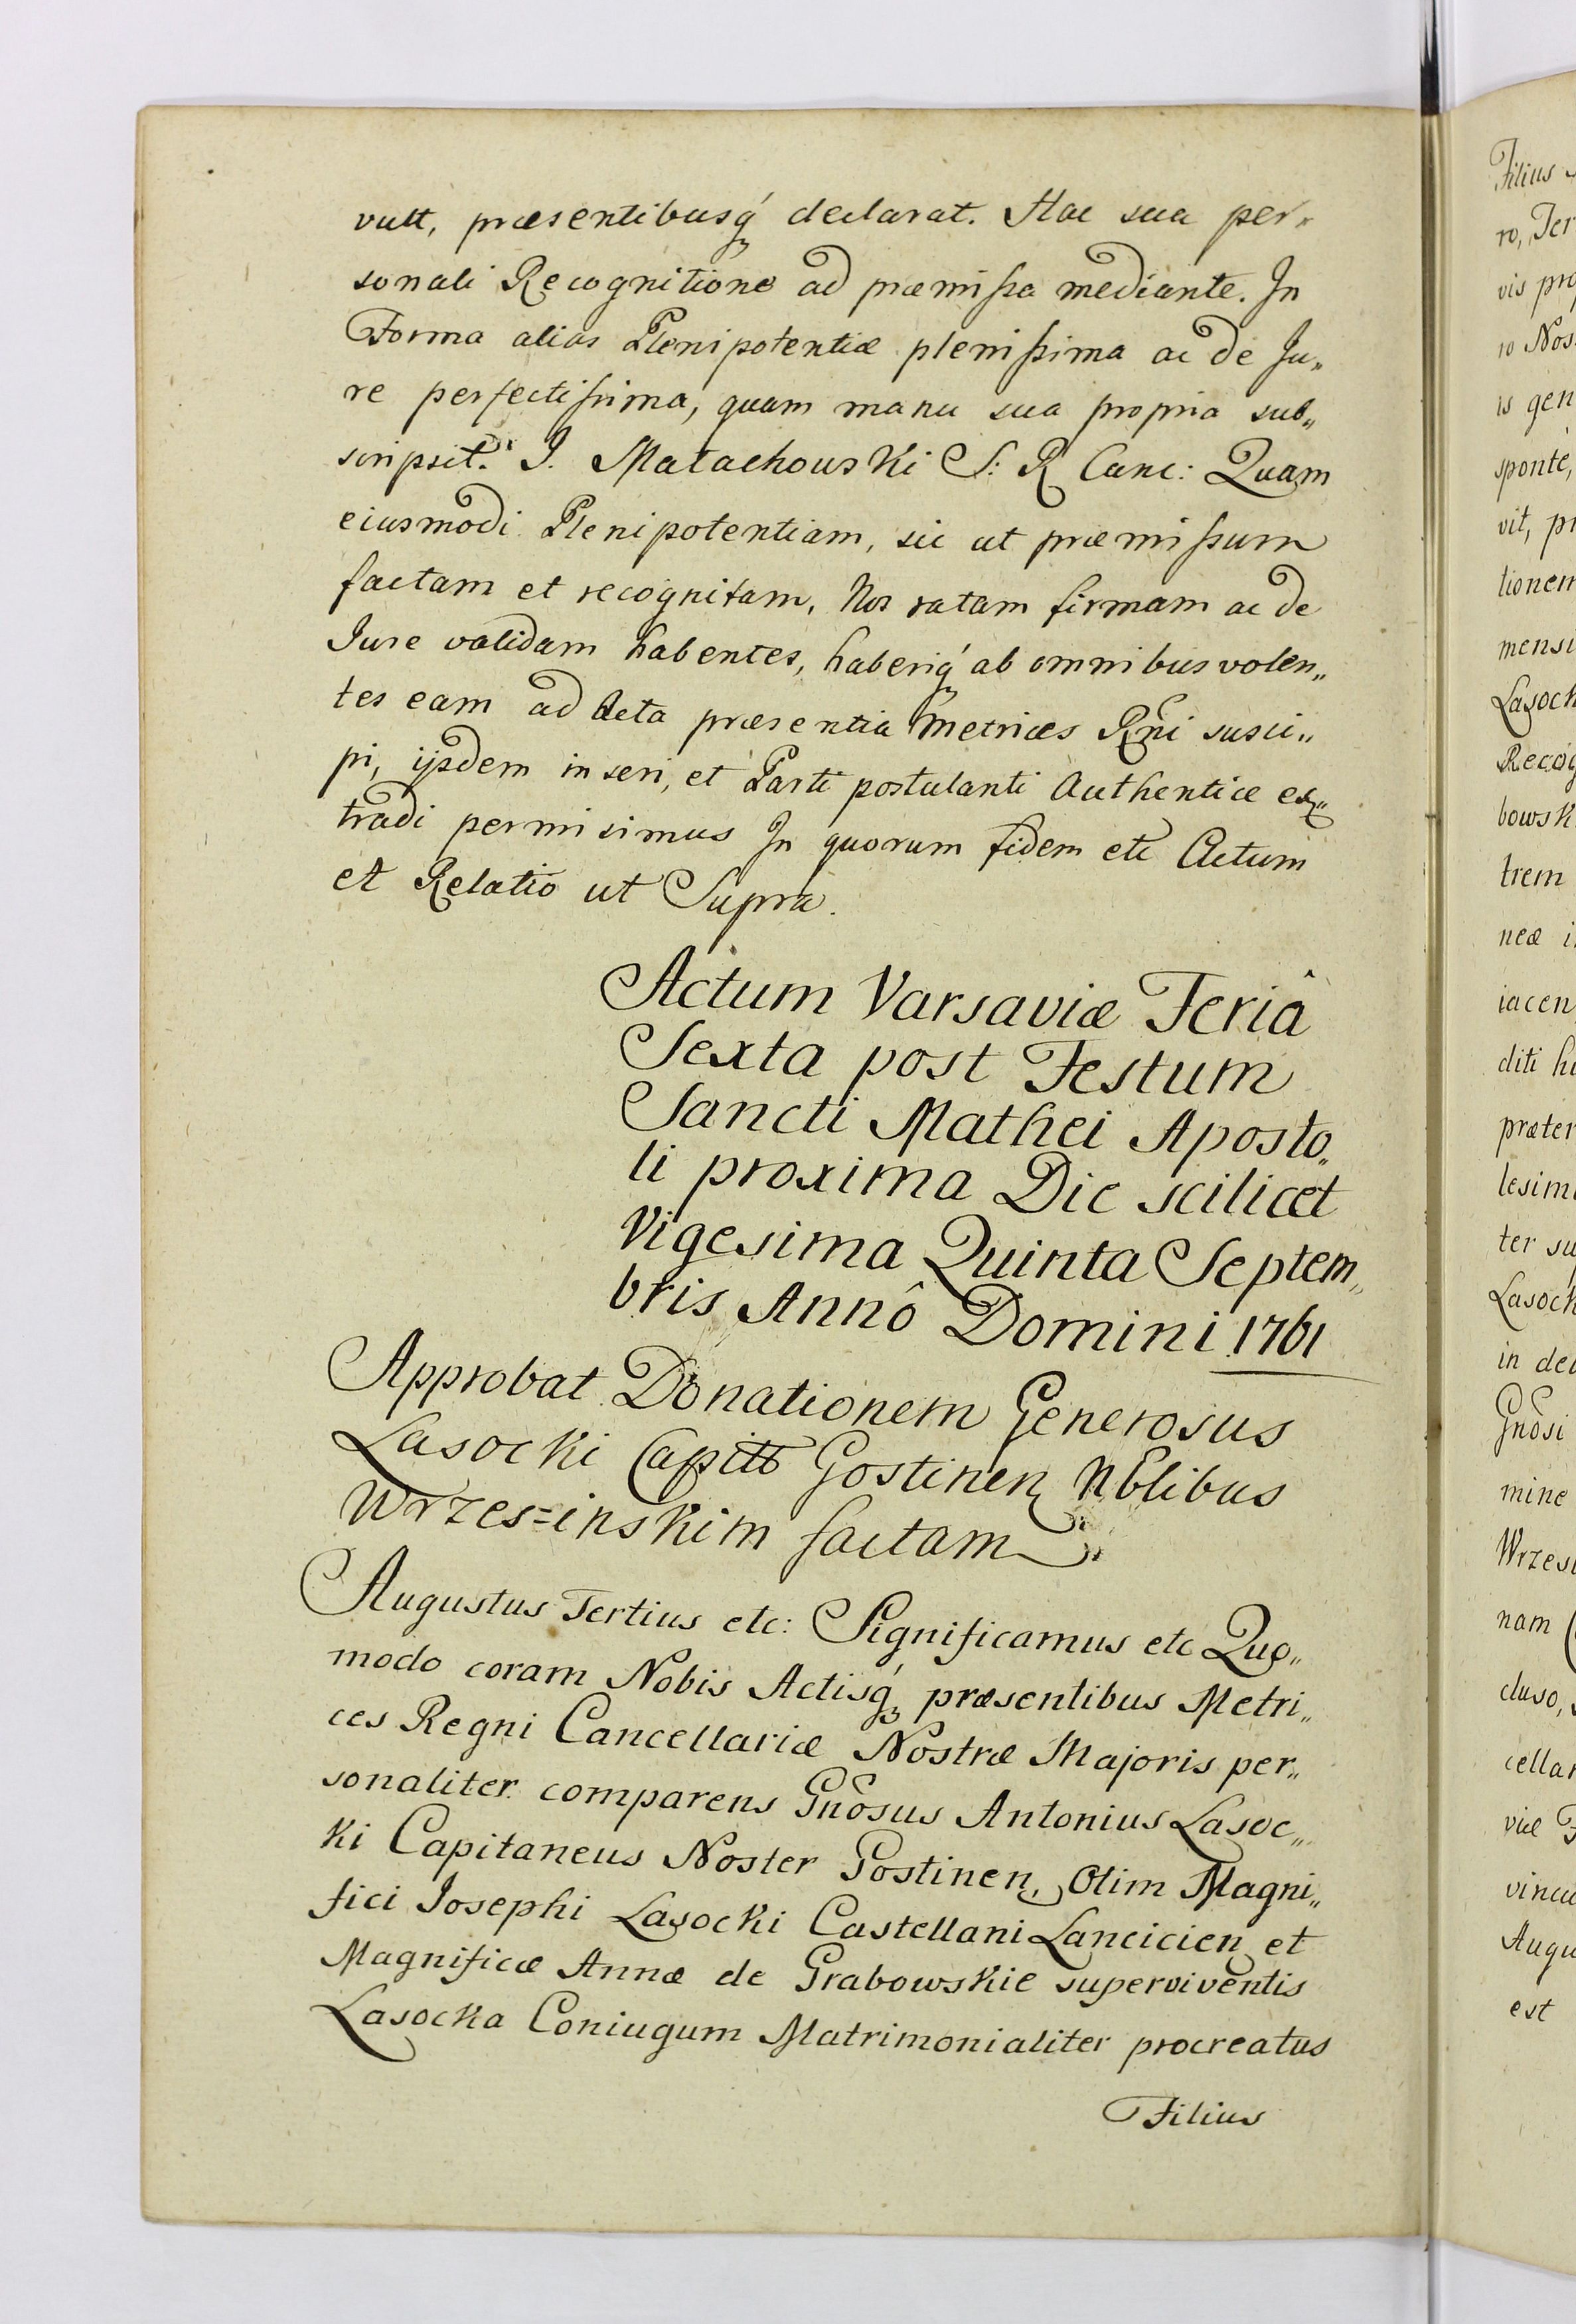 vult, præsentibusq́ declarat. Hac sua per„
sonali Recognitione ad præmißa mediante. In
Forma alias Plenipotentiæ plenißima ac de Ju„
re perfectißima, quam manu sua propria sub„
scripsit. J. Małachowski S: R Canc: Quam
eiusmodi Plenipotentiam, sic ut præmißum
factam et recognitam, Nos ratam firmam ac de
Jure validam habentes, haberiq́ ab omnibus volen„
tes eam ad Acta præsentia Metrices Rñi susci„
pi, ijsdem inseri, et Parti postulanti Authentice ex„
tradi permisimus In quorum fidem etc Actum
et Relatio ut Supra.
Actum Varsaviæ Feriâ
Sexta post Festum
Sancti Mathei Aposto„
li proxima Die scilicet
Vigesima Quinta Septem„
bris Annô Domini 1761
Approbat Donationem Generosus
Lasocki Capitt Gostinen Nblibus
Wrzes=inskim factam
Augustus Tertius etc: Significamus etc Quo„
modo coram Nobis Actisq́ præsentibus Metri„
ces Regni Cancellariæ Nostræ Majoris per„
sonaliter comparens Gnôsus Antonius Lasoc„
ki Capitaneus Noster Gostinen, Olim Magni„
fici Josephi Lasocki Castellani Lancicien et
Magnificæ Annæ de Grabowskie superviventis
Lasocka Coniugum Matrimonialiter procreatus
Filius
Filius
ro,
vis
io
is gen
sponte,
vit,
tionem
mensi
Lasock
Recog
bowsk
trem
neæ
iacen
diti
præter
lesim
ter su
Lasock
in
Gnôsi
mine
Wrzesi
nam
cluso,
cellar
viæ
vincu
Augu
est